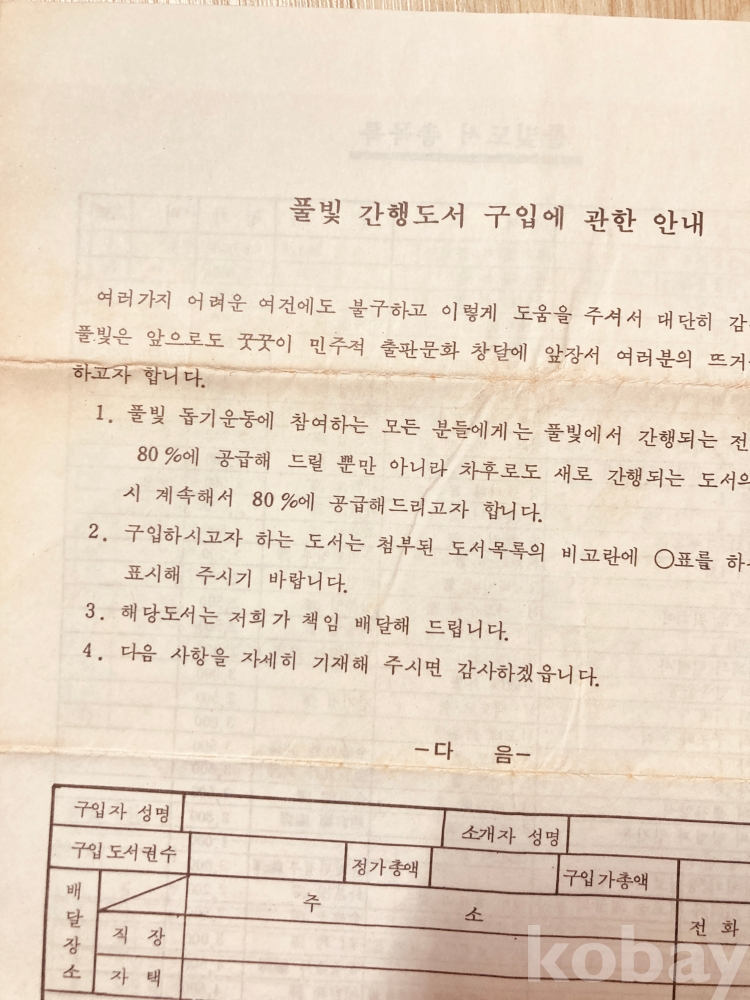 풀빛 간행도서 구입에 관한 안내
여러가지 어려운 여건에도 불구하고 이렇게 도움을 주셔서 대단히 감
풀빛은 앞으로도 꿋꿋이 민주적 출판문화 창달에 앞장서 여러분의 뜨거
하고자 합니다.
1. 풀빛 돕기운동에 참여하는 모든 분들에게는 풀빛에서 간행되는 전
80%에 공급해 드릴 뿐만 아니라 차후로도 새로 간행되는 도서의
시 계속해서 80%에 공급해드리고자 합니다.
2. 구입하시고자 하는 도서는 첨부된 도서목록의 비고란에 ○표를 하
표시해 주시기 바랍니다.
3. 해당도서는 저희가 책임 배달해 드립니다.
4. 다음 사항을 자세히 기재해 주시면 감사하겠읍니다.
-다 음-
구입자 성명 소개자 성명
구입도서권수 정가총액 구입가총액
배달장소 주 소 전화
직장
자택
kobay